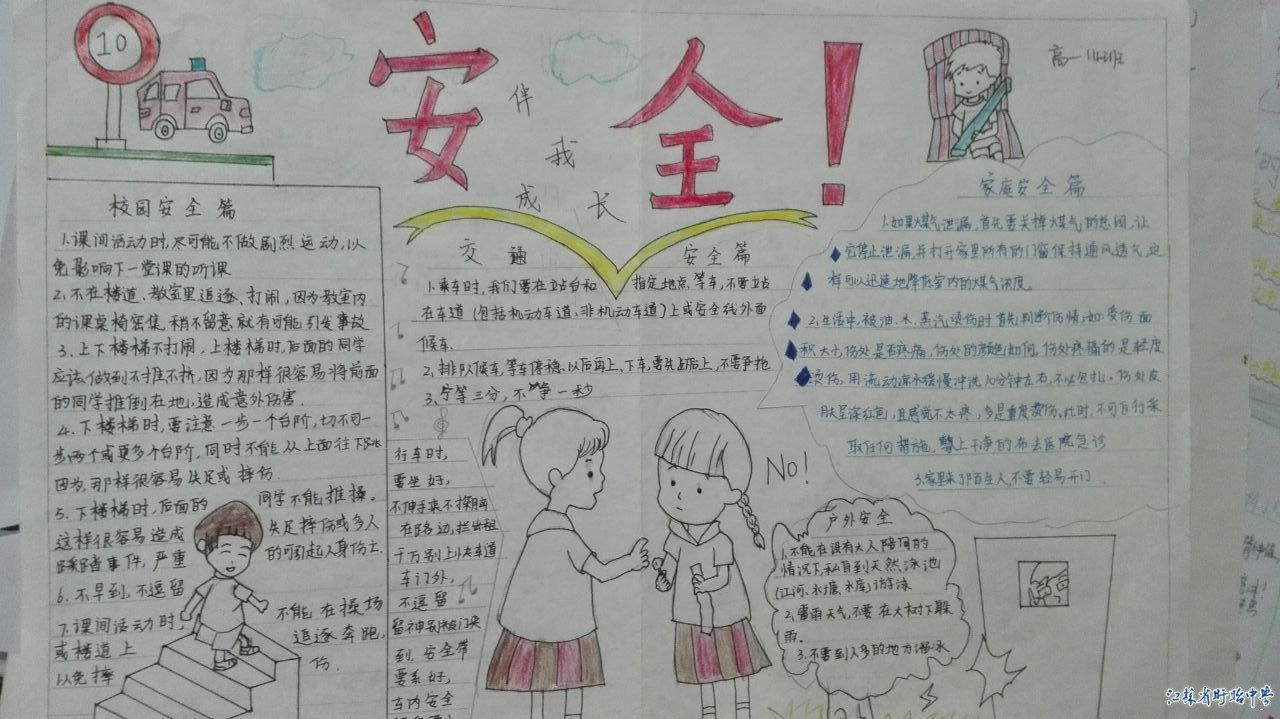 10
安全！
伴我成长
高一
校园安全篇
1.课间活动时,尽可能不做剧烈运动,以
免影响下一堂课的听课
2.不在楼道、教室里追逐、打闹,因为教室内
的课桌椅密集,稍不留意,就有可能引发事故
3.上下楼梯不打闹,上楼梯时,后面的同学
应该做到不推不挤,因为那样很容易将前面
的同学推倒在地,造成意外伤害.
4.下楼梯时,要注意一步一个台阶,切不可一
步两个或更多个台阶,同时不能从上面往下跳
因为,那样很容易失足或摔伤.
5.下楼梯时,后面的同学不能推搡。
这样很容易造成失足摔伤或多人
事件,严重的可引起人身伤亡.
6.不早到,不逗留
7.课间活动时,不能在操场
或楼道上追逐奔跑,
以免摔伤.
交通安全篇
1.乘车时,我们要在站台和指定地点等车,不要站
在车道(包括机动车道、非机动车道)上或安全线外面
候车.
2.排队候车,等车停稳以后再上,下车,要先下后上,不要争抢
3.宁等三分,不争一秒
行车时,
要坐好,
不伸手来不探脑
在路边,拦出租
千万别上快车道
车门外,
不逗留
留神别被门夹
到,安全带
要系好,
车内安全
家庭安全篇
1.如果煤气泄漏,首先要关掉煤气的总阀,让
它停止泄漏,并打开家里所有的门窗保持通风透气,这
样可以迅速地降低室内的煤气浓度.
2.生活中,被油、水、蒸汽烫伤时首先判断伤情,如:受伤面
积大小,伤处是否疼痛,伤处的颜色如何,伤处疼痛的是轻度
烫伤,用流动凉水缓慢冲洗10分钟左右,不必包扎。伤处皮
肤呈深红色,且感觉不太疼,多是重度烫伤.此时,不可自行采
取任何措施,上干净的布去医院急诊
3.家里来了陌生人不要轻易开门.
No!
户外安全
1.不能在没有大人陪同的
情况下,私自到天然泳池
(江河、水塘、水库)游泳
2.雷雨天气,不要在大树下躲
雨.
3.不要到人多的地方游泳
江苏省盱眙中学